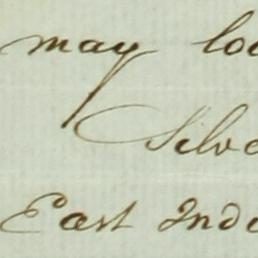 may loo
Silve
East Indi